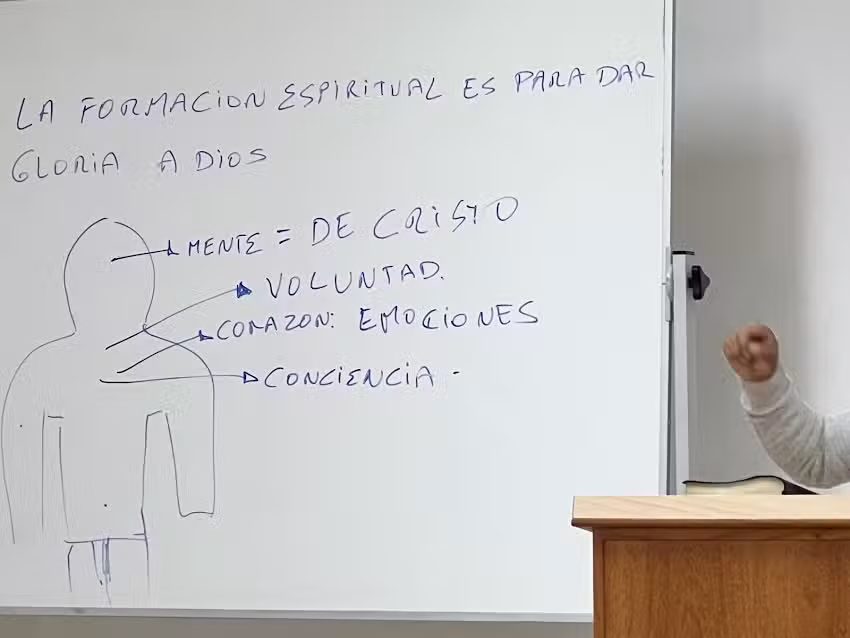 LA FORMACION ESPIRITUAL ES PARA DAR
GLORIA A DIOS
MENTE = DE CRISTO
VOLUNTAD.
CORAZON: EMOCIONES
CONCIENCIA -